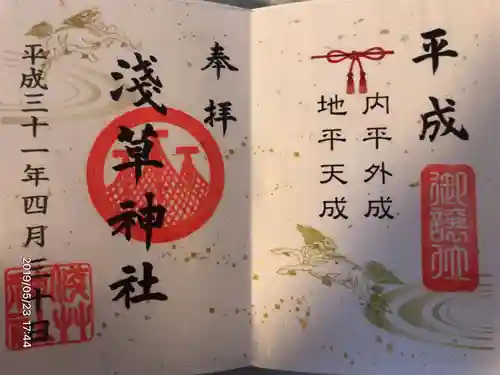 平成
御譲位
内平外成
地平天成
奉拝
淺草神社
平成三十一年四月三十日
2019/05/23 17:44